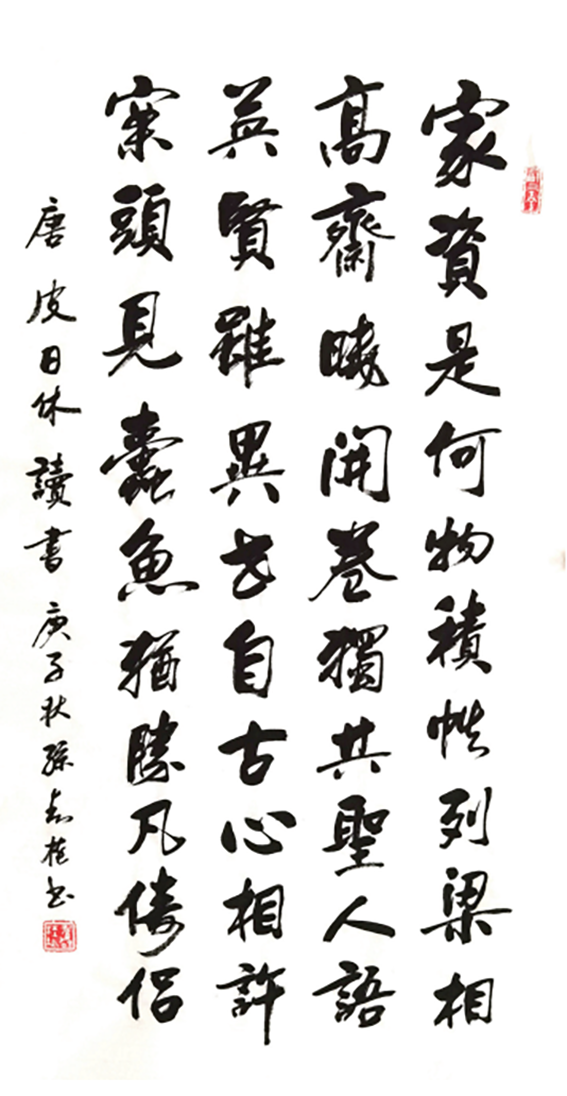 家資是何物積帙列梁相
高齋曉開卷獨共聖人語
英賢雖異世自古心相許
案頭見蠹魚猶勝凡儔侶
唐皮日休讀書 庚子秋孫书